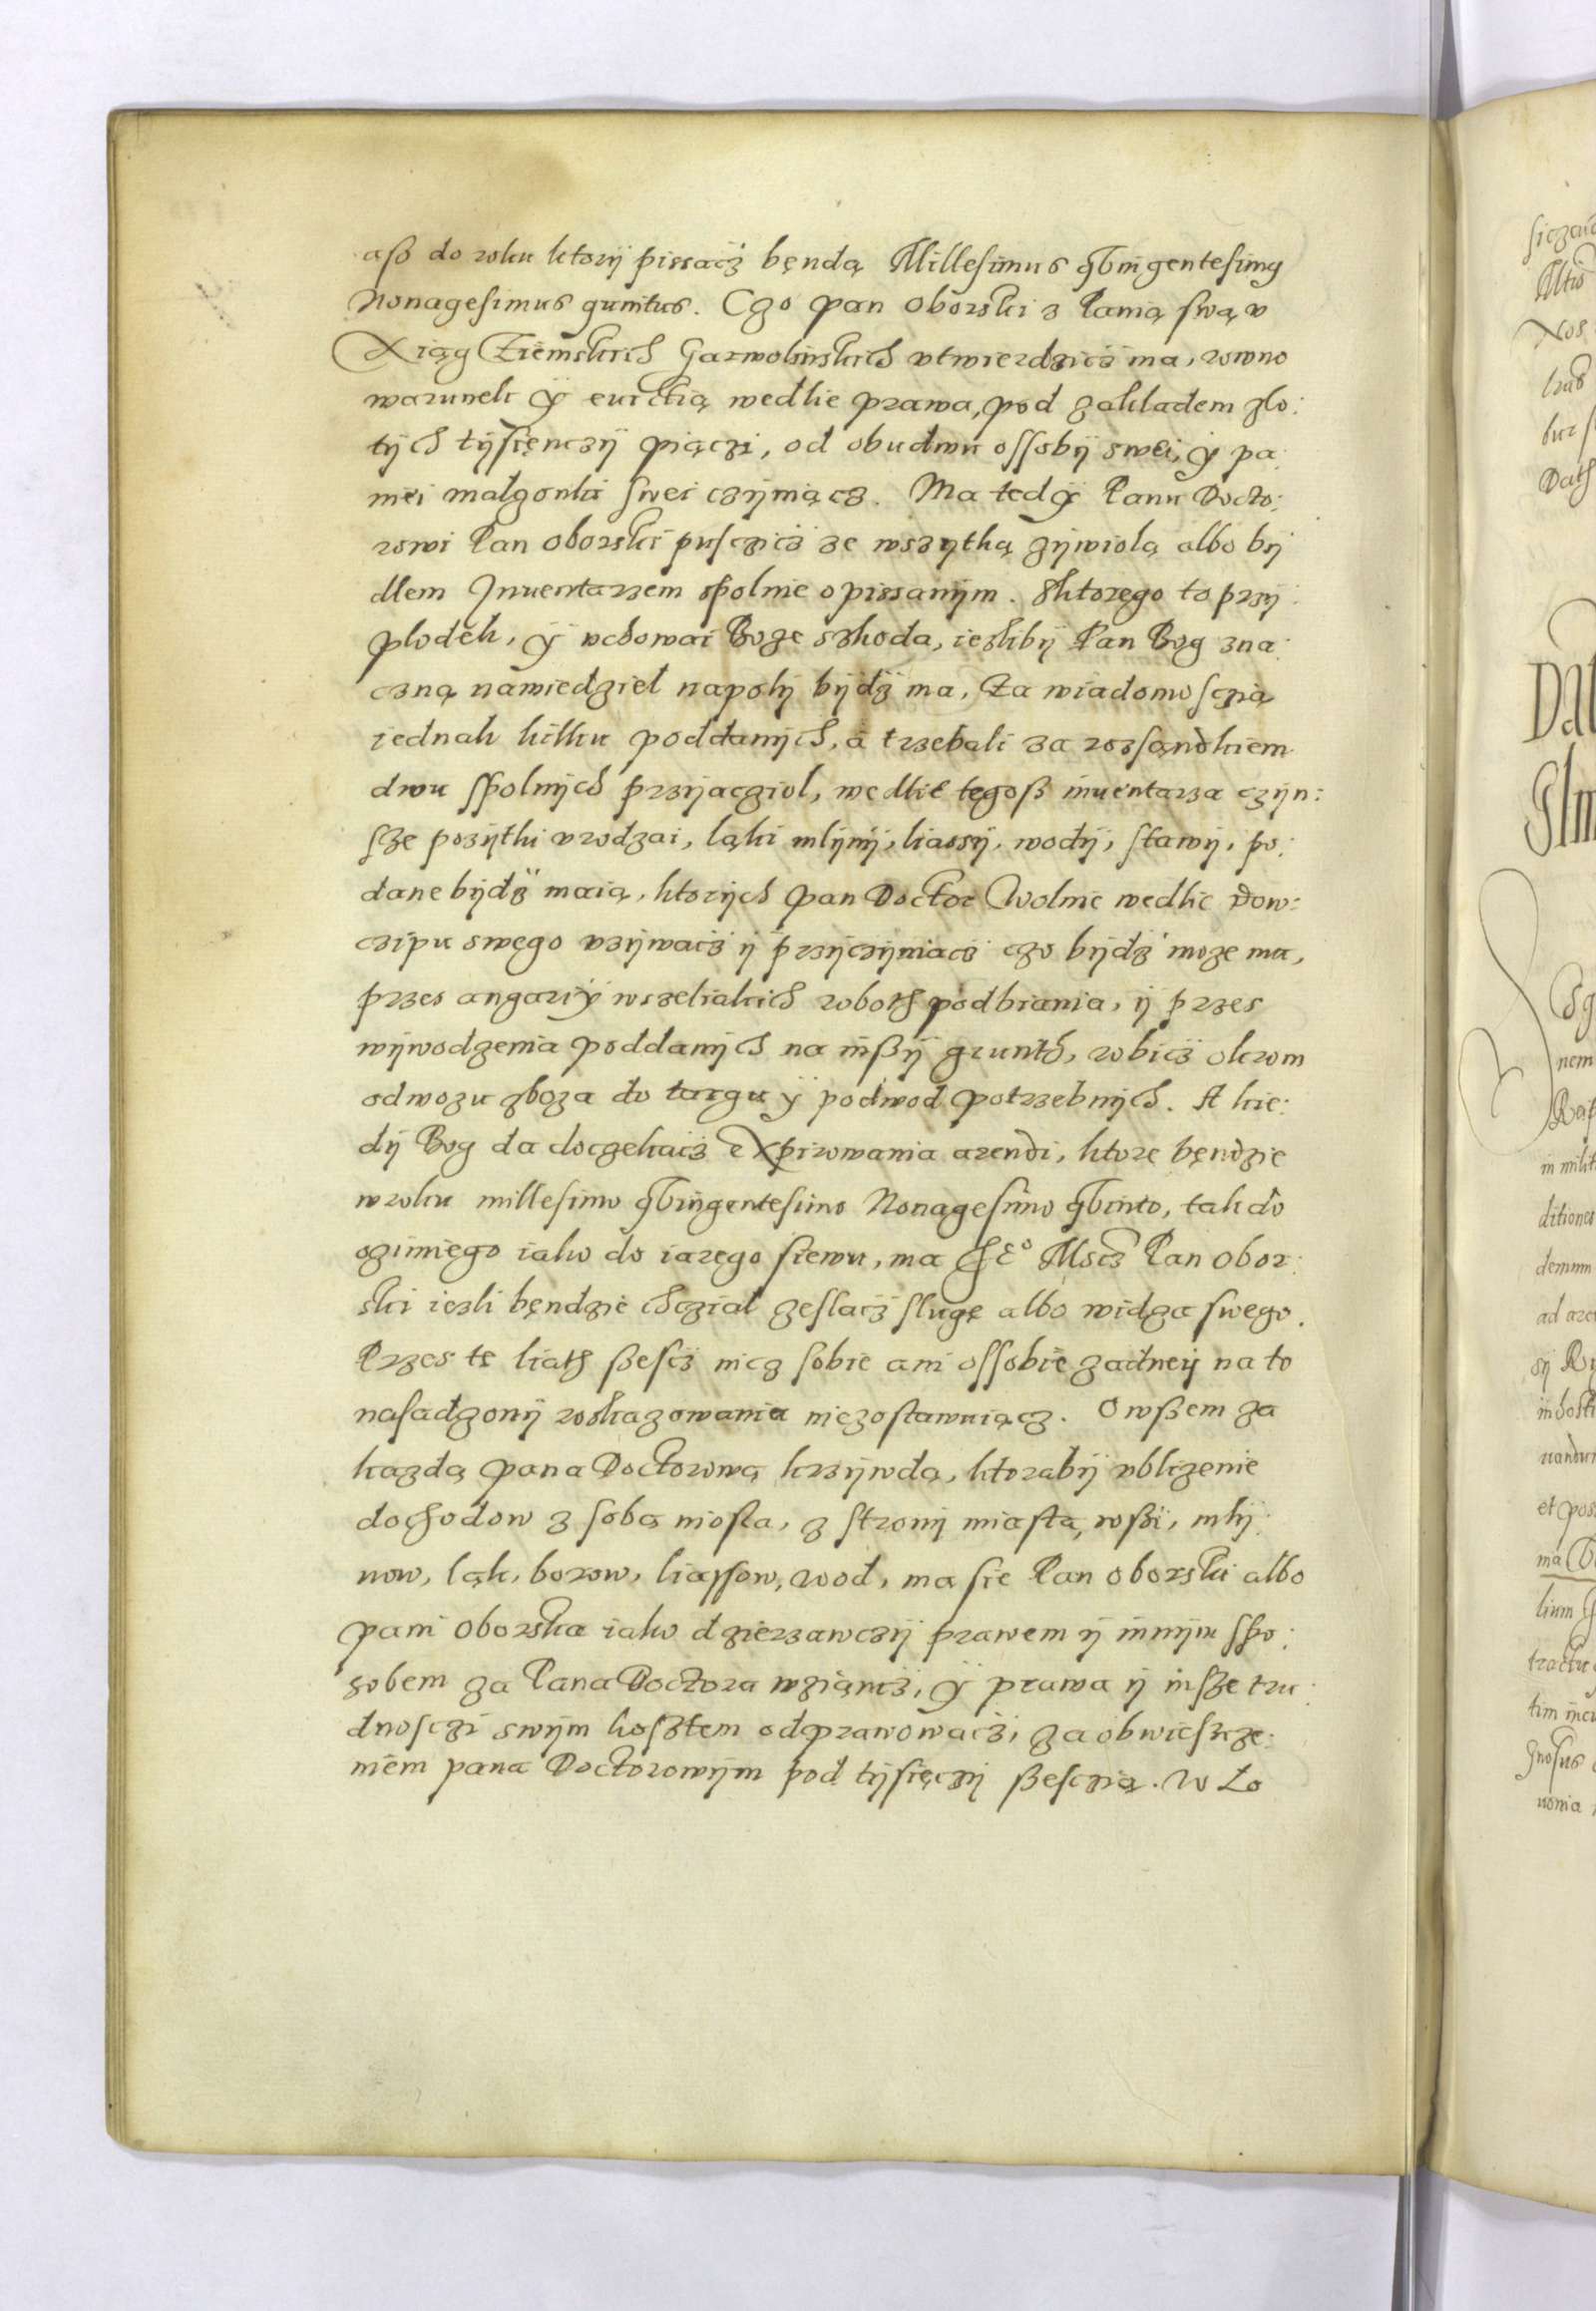 aß do roku ktorÿ pissacz będą Millesimus qvingentesimg
Nonagesimus quintus. Czo pan Oborski z Panią swą v
Xiąg Ziemskich Garwolinskich vtwierdzicz ma, rowno
warunek ÿ euictią wedlie prawa, pod zakladem zlo:
tÿch tÿsięnczÿ piączi, od obudwu ossobÿ swei, ÿ pa:
niei malzonki swei czÿniącz. Ma tedÿ Panu Docto:
rowi Pan Oborski pusczicz ze wszytką zÿwiolą albo bÿ
dlem Jnuentarzem spolnie opissanÿm. Sktorego to przÿ:
plodek, ÿ vchowai Boze szkoda, iezlibÿ Pan Bog zna:
czną nawiedziel napolÿ bÿdz ma, Za wiadomosczią
iednak kilku poddanÿch, a trzebali za rozsąndkiem
dwu spolnÿch przÿacziol, wedlie tegoß inuentarza czÿn:
sze pozÿtki vrodzai, ląki mlÿnÿ, liassÿ, wodÿ, stawÿ, po:
dane bÿdz maią, ktorÿch pan Doctor Wolnie wedlie dow:
czipu swego vzÿwacz ÿ przÿczÿniacz czo bÿdz moze ma,
przes angariÿ wszeliakich roboth podbrania, ÿ przes
wÿwodzenia poddanÿch na inßÿ grunth, robicz okrom
odwozu zboza do targu ÿ podwod potrzebnÿch. A kie:
dÿ Bog da doczekacz expirowania arendi, ktore bęndzie
w roku millesimo qvingentesimo Nonagesimo qvinto, tak do
oziniego iako do iarego siewu, ma Je° Mscz Pan Obor:
ski iezli bęndzie chczial zeslacz slugę albo widza swego.
Przes te liath ßescz nicz sobie ani ossobie zadneÿ na to
nasadzonÿ roskazowania niezostawuiącz. Owßem za
kazdą pana Doctorową krzÿwdą, ktorabÿ vblizenie
dochodow z sobą niosla, z stronÿ miasta, wßi, mlÿ:
now, ląk, borow, liassow, wod, ma sie Pan Oborski albo
pani Oborska iako dzierzawczÿ prawem ÿ innÿm spo:
sobem za Pana Doctora wziąncz, ÿ prawa ÿ insze tru:
dnosczi swÿm kosztem odprawowacz, za obwieszcze:
niem pana Doctorowÿm pod tÿsięczÿ ßesczią. W Lo